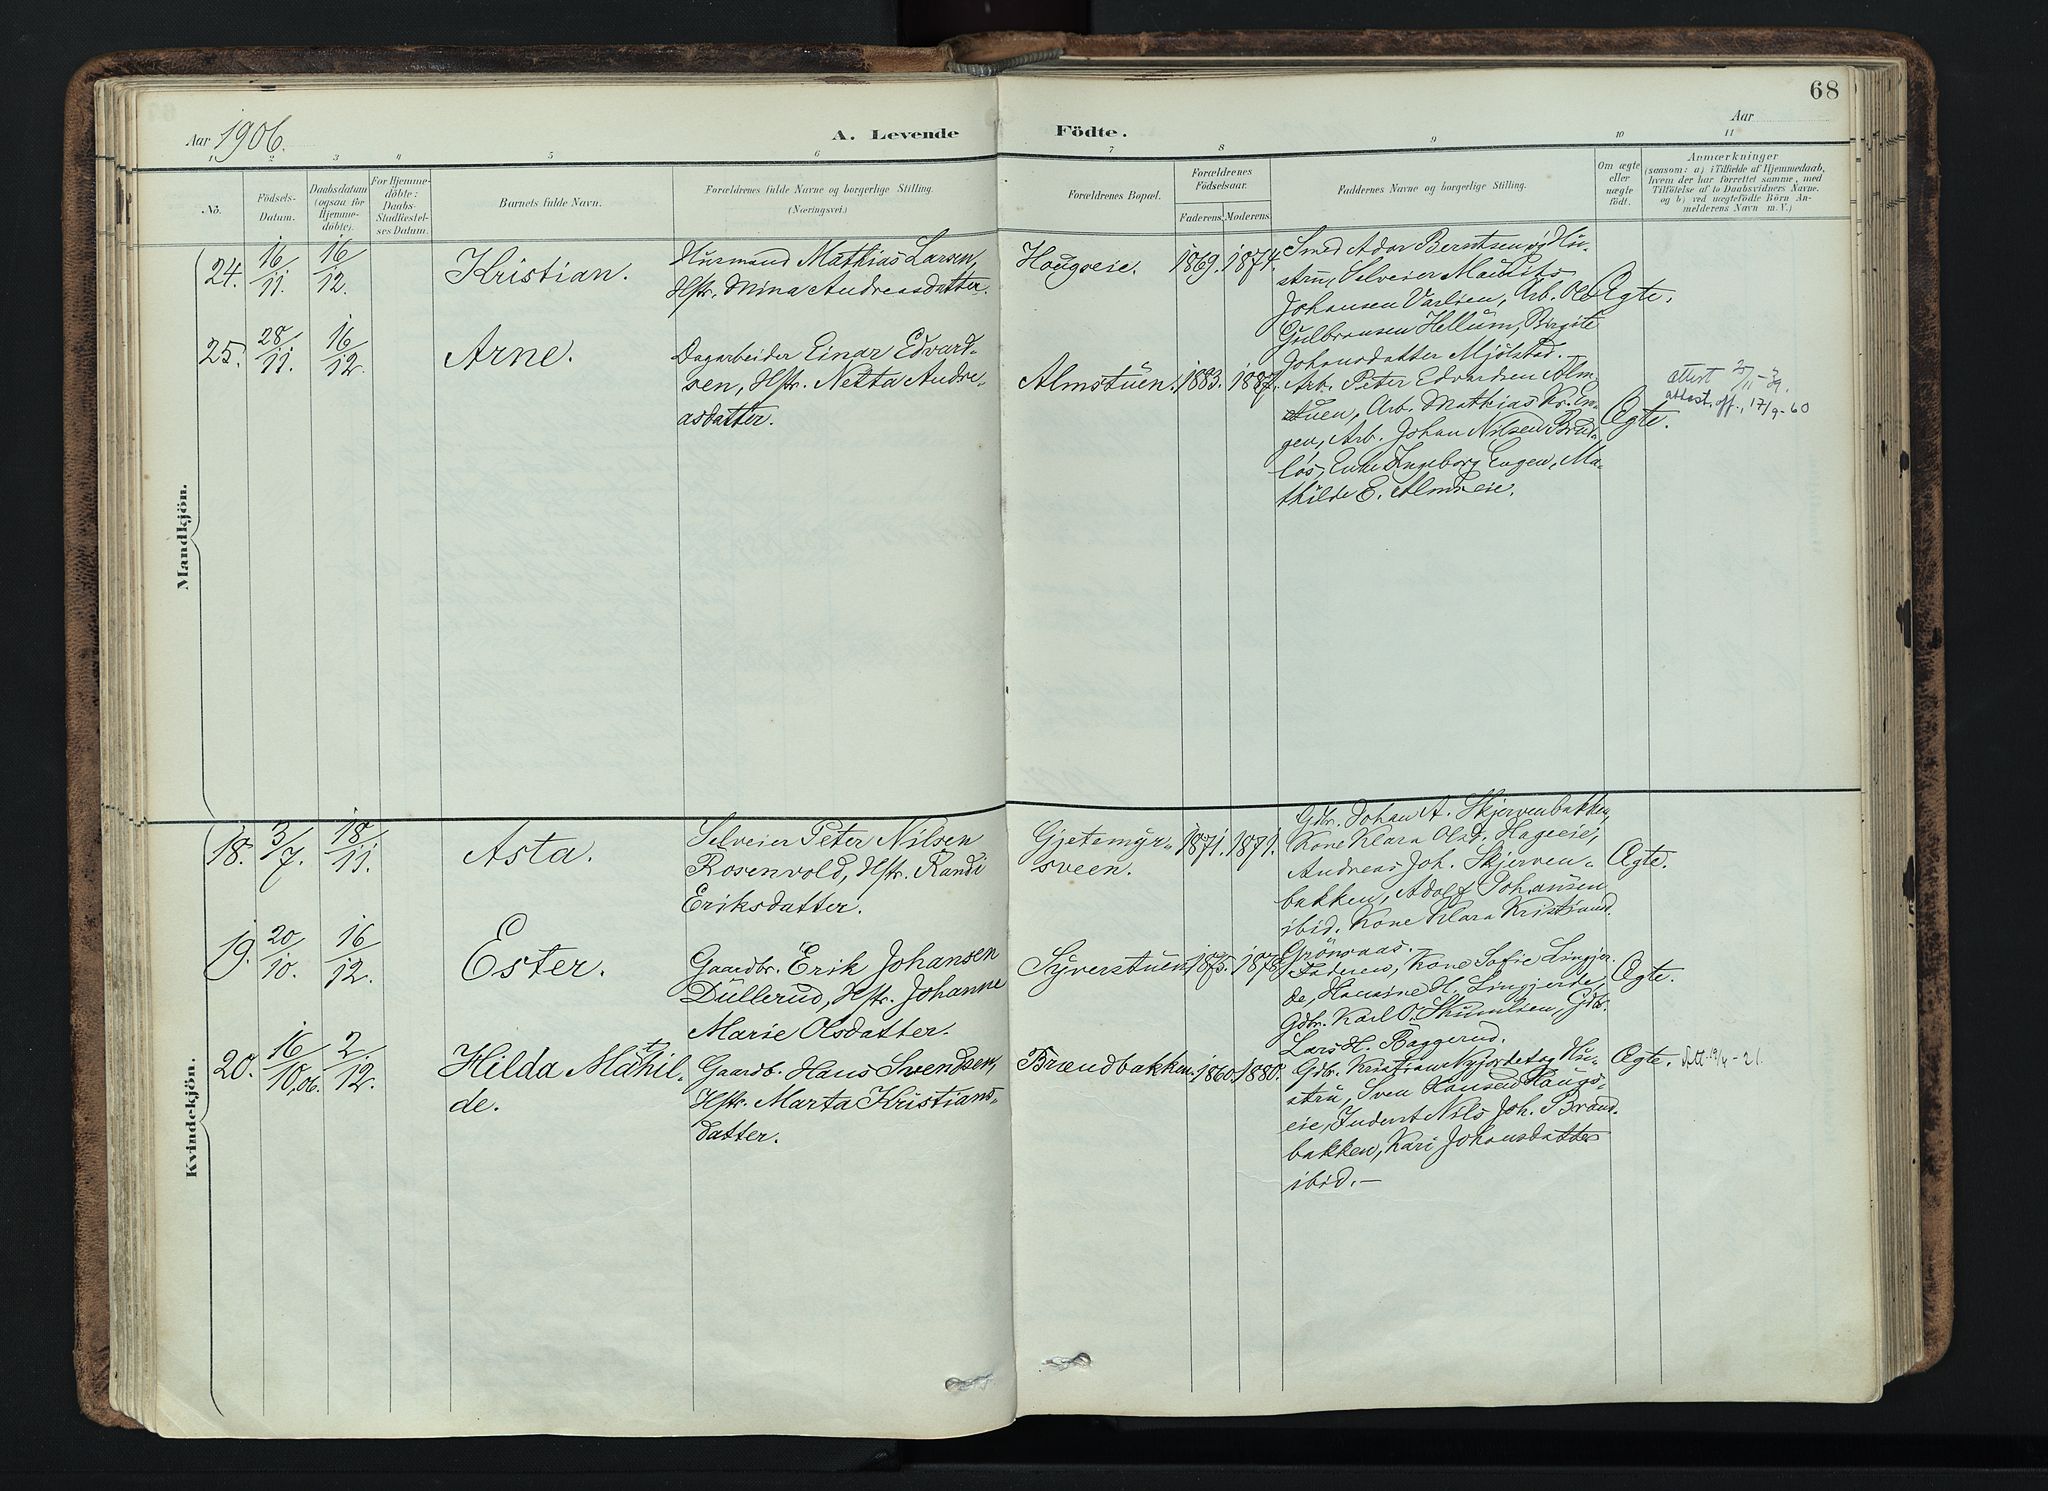 68
Aar 1906. A. Levende Födte. Aar
1 2 3 4 5 6 7 8 9 10 11
No.
Födsels-
Datum.
Daabsdatum
(ogsaa for
Hjemme-
döbte).
For Hjemme-
döbte:
Daabs-
Stadfæstel-
ses Datum.
Barnets fulde Navn.
Forældrenes fulde Navne og borgerlige Stilling.
(Næringsvei.)
Forældrenes Bopæl.
Forældrenes
Födselsaar.
Faderens. Moderens.
Faddernes Navne og borgerlige Stilling.
Om ægte
eller
uægte
födt.
Anmærkninger
(saasom: a) i Tilfælde af Hjemmedaab,
hvem der har forrettet samme, med
Tilföielse af to Daabsvidners Navne.
og b) ved uægtefödte Börn An-
melderens Navn m. V.)
Mandkjön.
24. 16/11. 16/12. Kristian.
Husmand Mathias Larsen,
Hstr. Mina Andreasdatter.
Hougseie. 1869. 1874.
Smed Adar Berntsen og Hu-
stru, Selveier Mauritz
Johansen Varlien, Arb. Ole
Gulbransen Hellum, Birgite
Johansdatter Mjölstad.
Ægte.
25. 28/11. 16/12. Arne.
Dagarbeider Einar Edvard-
sen, Hstr. Netta Andre-
asdatter.
Almstuen. 1883. 1887.
Arb. Peter Edvardsen Alm-
stuen, Arb. Mathias Kr. En-
gen, Arb. Johan Nilsen Bräd-
lös, Enke Ingeborg Engen, Ma-
thilde E. Almseie.
Ægte.
attest. off., 17/9-60
Kvindekjön.
18. 3/7. 18/11. Asta.
Selveier Peter Nilsen
Rosenvold, Hstr. Randi
Eriksdatter.
Gjetemyr-
sveen.
1871. 1871.
Gdbr. Johan A. Skjervenbakken,
Kone Klara Olsd. Hageeie,
Andreas Joh. Skjerven-
bakken, Adolf Johansen
ibid. Kone Klara Kristiansd.
Grönvaas.
Ægte.
19. 20/10. 16/12. Ester.
Gaardbr. Erik Johansen
Düllerud, Hstr. Johanne
Marie Olsdatter.
Syverstuen. 1875. 1878.
Faderen, Kone Sofie Lingjer-
de, Hansine H. Lingjerde,
Gdbr. Karl O. Skiaulsen, Gdbr.
Lars H. Baggerud.
Ægte.
20. 16/10,06. 2/12. Hilda Mathil-
de.
Gaardb. Hans Svendsen,
Hstr. Marta Kristians-
datter.
Brændbakken. 1860. 1880.
Gdbr. Kristian Nyjordet og Hu-
stru, Sven Hansen Haugs-
eie, Inderst Nils Joh. Bränd-
bakken, Kari Johansdatter
ibid.—
Ægte.
Att. 19/4-21.